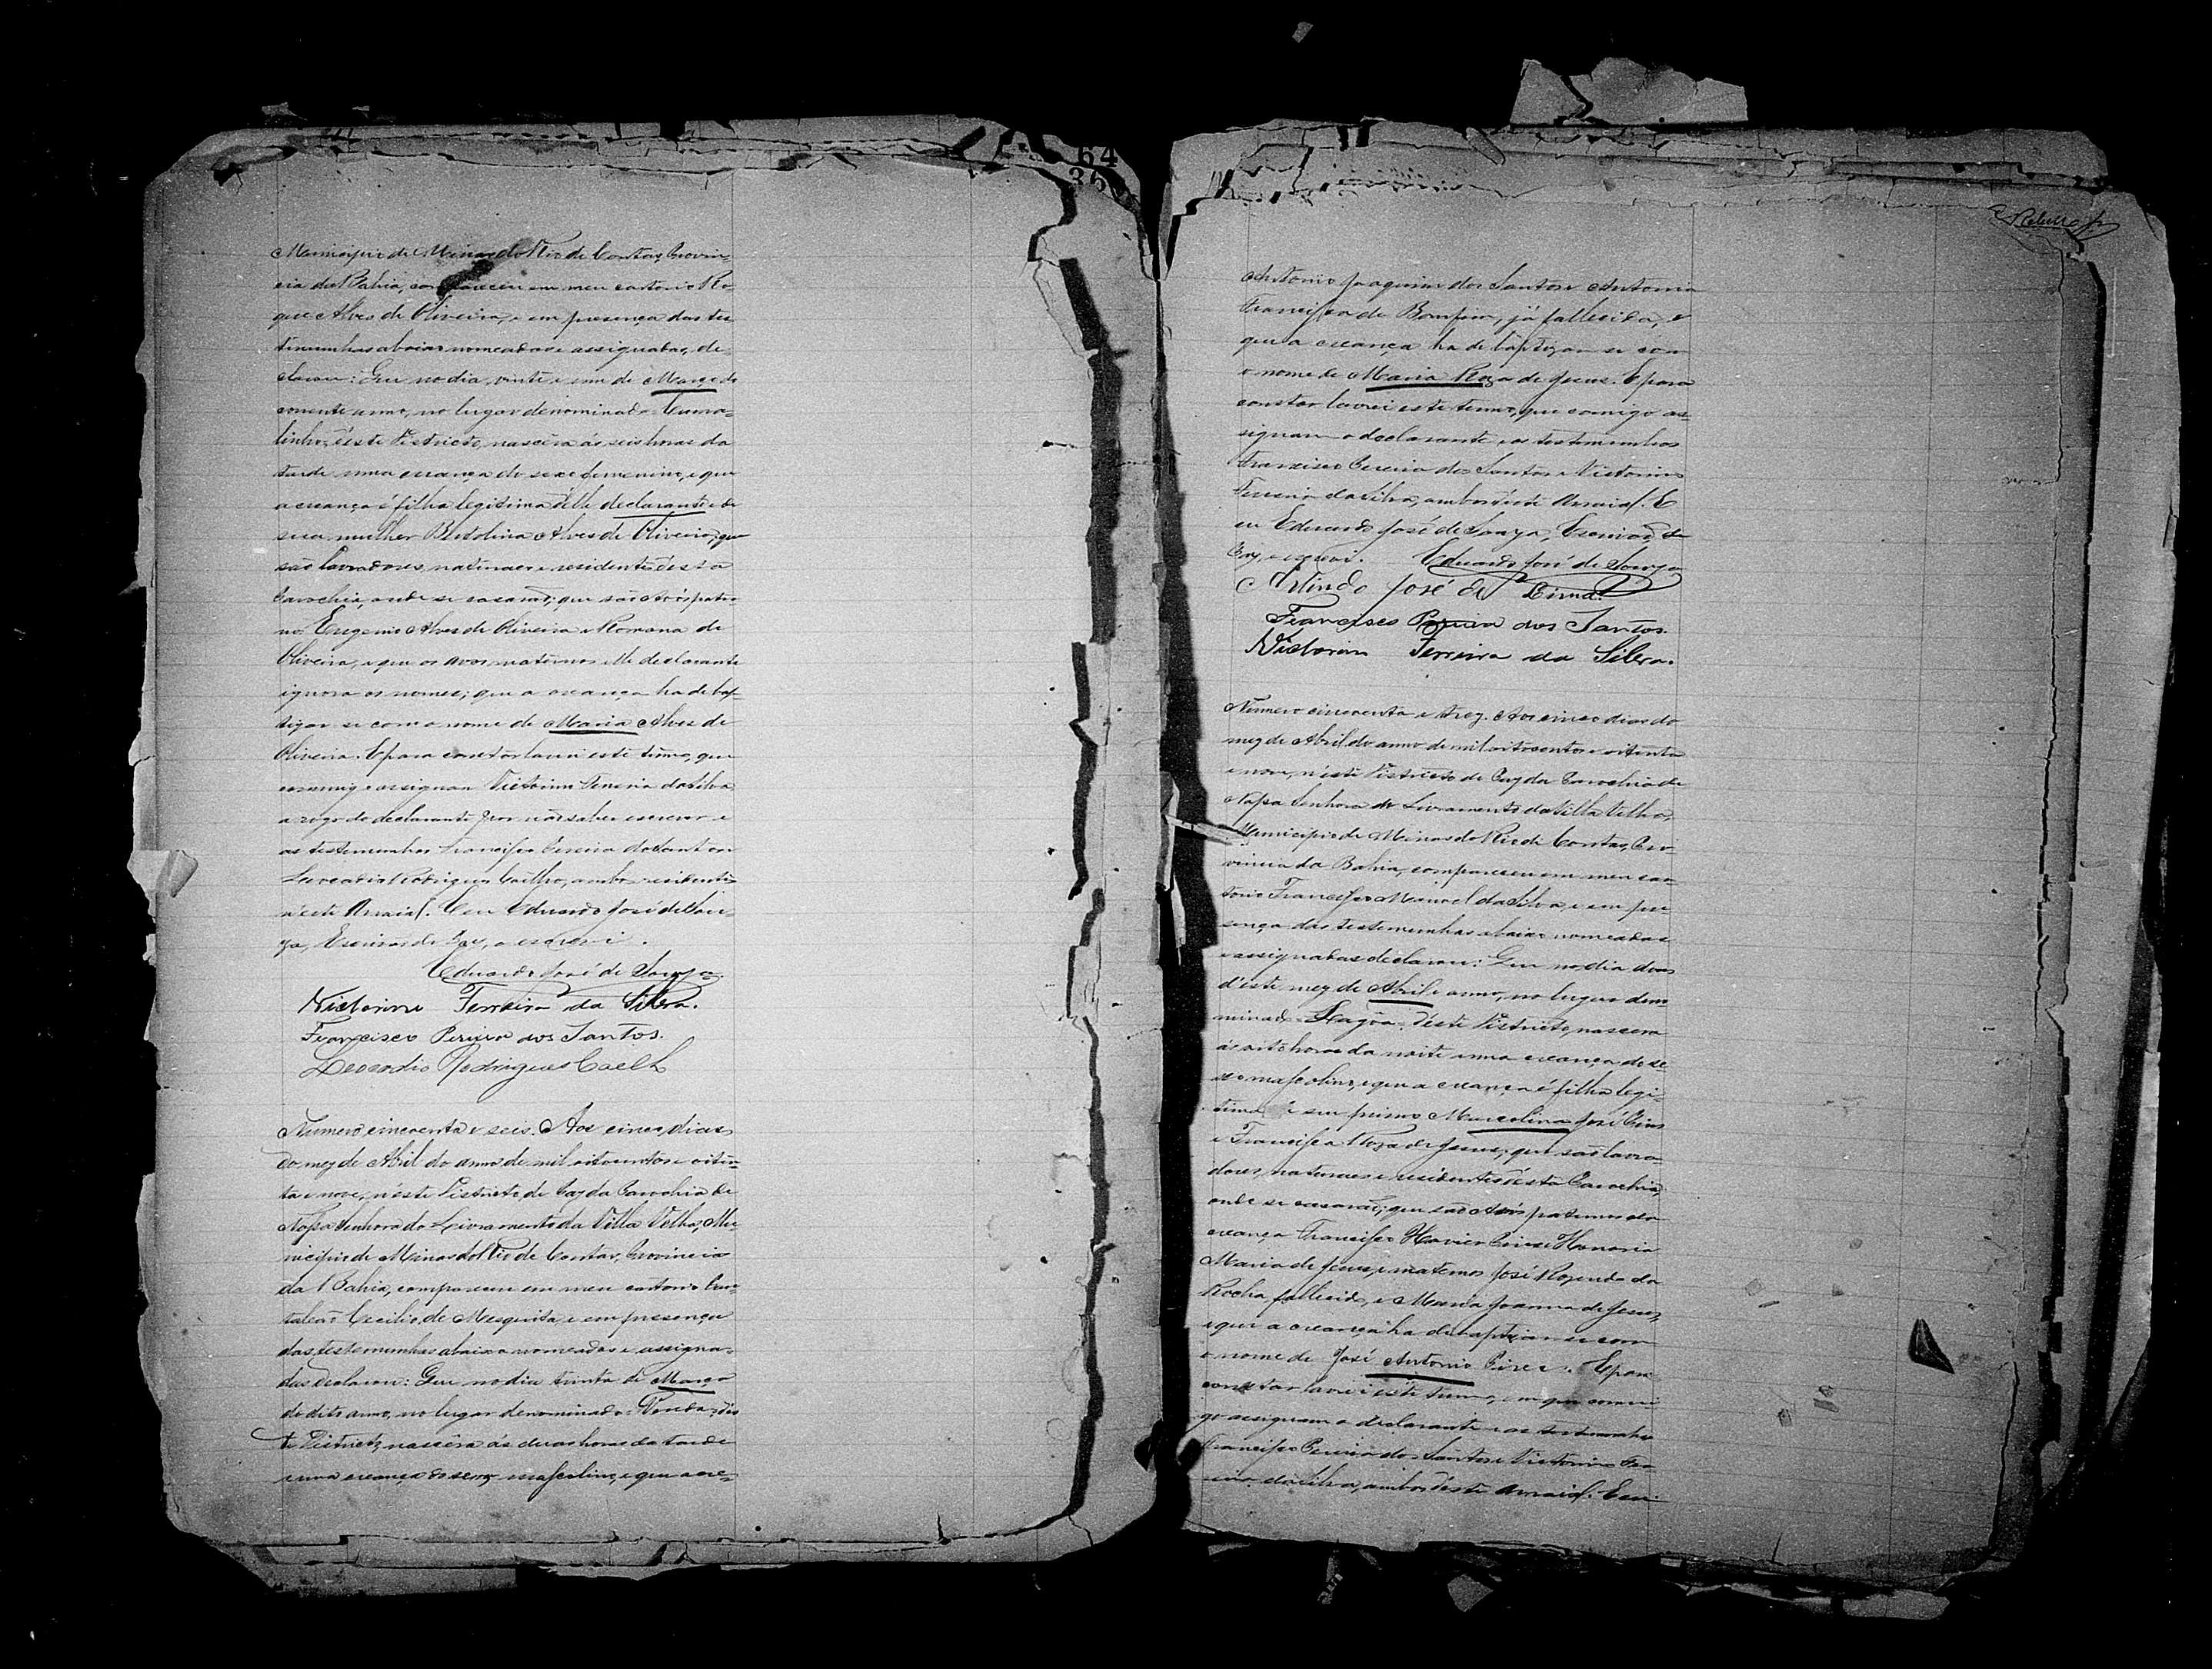 64
Municipio de Minas do Rio de Contas, Provin-
cia da Bahia, compareceu em meu cartorio Ro-
que Alves de Oliveira, e em presença das tes-
timunhas abaixo nomeadas e assignadas, de-
clarou: Que no dia vinte e um de Março do
corrente anno, no lugar denominado Curra-
linho, d'este Districto, nascêra ás seis horas da
tarde uma creança do sexo femenino, e que
a creança é filha legitima d'elle declarante e de
sua mulher Alves de Oliveira, que
são lavradores, naturaes e residentes n'esta
Parochia, onde se casarão; que são Avós pater-
nos Eugenio Alves de Oliveira e Romana de
Oliveira, e que os avos maternos elle declarante
ignora os nomes; que a creança ha de bap-
tizar se com o nome de Maria Alves de
Oliveira. E para constar lavrei este termo, que
commigo assignão Victorino Ferreira da Silva
a rogo do declarante por não saber escrever e
as testemunhas Francisco Pereira dos Santos e
Leocadio Rodrigues Coelho, ambos residentes
n'este Arraial. E eu Eduardo José de Sou-
za, Escrivão de Paz, o escrevi.
Eduardo José de Souza
Victorino Ferreira da Silva.
Francisco Pereira dos Santos.
Leocadio Rodrigues Coelh
Numero cincoenta e seis. Aos cinco dias
do mez de Abril do anno de mil oitocentos e oiten-
ta e nove, n'este Districto de Paz da Parochia de
Nossa Senhora do Livramento da Villa Velha, Mu-
nicipio de Minas do Rio de Contas, Provincia
da Bahia, compareceu em meu cartorio
Cecilio de Mesquita, e em presença
das testemunhas abaixo nomeadas e assigna-
das declarou: Que no dia trinta de Março
do dito anno, no lugar denominado Vereda, d'es-
te Districto, nascêra ás duas horas da tarde
uma creança do sexo masculino, e que a cre-
Antonio Joaquim dos Santos e Antonia
Francisca de Bomfim, já fallecida, e
que a creança ha de baptizar se com
o nome de Maria Roza de Jesus. E para
constar lavrei este termo, que comigo as-
signam o declarante e as testemunhas
Francisco Pereira dos Santos e Victorino
Ferreira da Silva, ambos d'este Arraial. E
eu Eduardo José de Souza, Escrivão de
Paz, o escrevi. Eduardo José de Souza
José de
Francisco Pereira dos Santos.
Victorin Ferreira da Silva.
Numero cincoenta e trez. Aos cinco dias do
mez de Abril do anno de mil oitocentos e oitenta
e nove, n'este Districto de Paz da Parochia de
Nossa Senhora do Livramento da Villa Velha,
Municipio de Minas do Rio de Contas, Pro-
vincia da Bahia, compareceu em meu car-
torio Francisco Manoel da Silva, e em pre-
sença das testemunhas abaixo nomeadas
e assignadas declarou: Que no dia dous
d'este mez de Abril e anno, no lugar deno-
minado Lagôa, d'este Districto, nascera
ás oito horas da noite uma creança de se-
xo masculino, e que a creança é filha legi-
tima de seu primo Marcolino José Pires
e Francisca Roza de Jesus, que são lavra-
dores, naturaes e residentes n'esta Parochia,
onde se casarão; que são Avós paternos da
creança Francisco Xavier Pires e Honoria
Maria de Jesus, e maternos José Rozendo da
Rocha, fallecido, e Maria Joanna de Jesus,
e que a creança ha de baptizar se com
o nome de José Antonio Pires. E para
constar lavrei este termo, em que commi-
go assignam o declarante e as testemunhas
Francisco Pereira dos Santos e Victorino Fer-
reira da Silva, ambos d'este Arraial. E eu